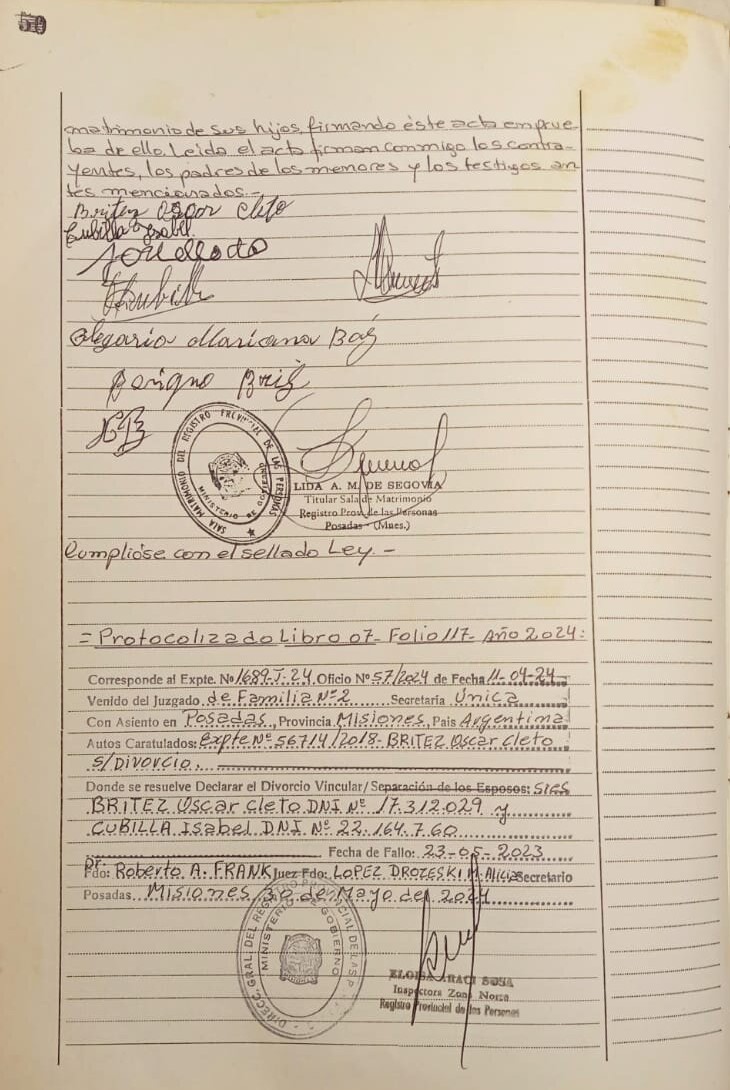 matrimonio de sus hijos, firmando éste acta em prue
ba de ello. Leida el acta firman conmigo los contra-
yentes, los padres de los menores y los testigos an
tes mencionados.-
Britez Oscar Cleto
Cubilla Isabel.
Olegaria Mariana Báez
Benigno Britez
SALA MATRIMONIO DEL REGISTRO PROVINCIAL DE LAS PERSONAS
MINISTERIO DE GOBIERNO
LIDA A. M. DE SEGOVIA
Titular Sala de Matrimonio
Registro Prov. de las Personas
Posadas - (Mnes.)
Cumplióse con el sellado Ley.-
= Protocolizado Libro 07- Folio 117- Año 2024:
Corresponde al Expte. Nº 1689-J-24, Oficio Nº 57/2024 de Fecha 11-04-24
Venido del Juzgado de Familia Nº 2 Secretaria Única
Con Asiento en Posadas, Provincia Misiones, Pais Argentina
Autos Caratulados: Expte Nº 56714/2018- BRITEZ Oscar Cleto
s/DIVORCIO.
Donde se resuelve Declarar el Divorcio Vincular/Separación de los Esposos: Sres
BRITEZ Oscar Cleto DNI Nº 17.312.029 y
CUBILLA Isabel DNI Nº 22.164.760
Fecha de Fallo: 23-05-2023
Fdo: Dr. Roberto A. FRANK Juez Fdo: LOPEZ DROZESKI M. Alicia Secretario
Posadas, Misiones 30 de Mayo de 2024
DIRECC. GRAL. DEL REGISTRO PROVINCIAL DE LAS P
MINISTERIO DE GOBIERNO
ELOISA ARACI SOSA
Inspectora Zona Norte
Registro Provincial de las Personas